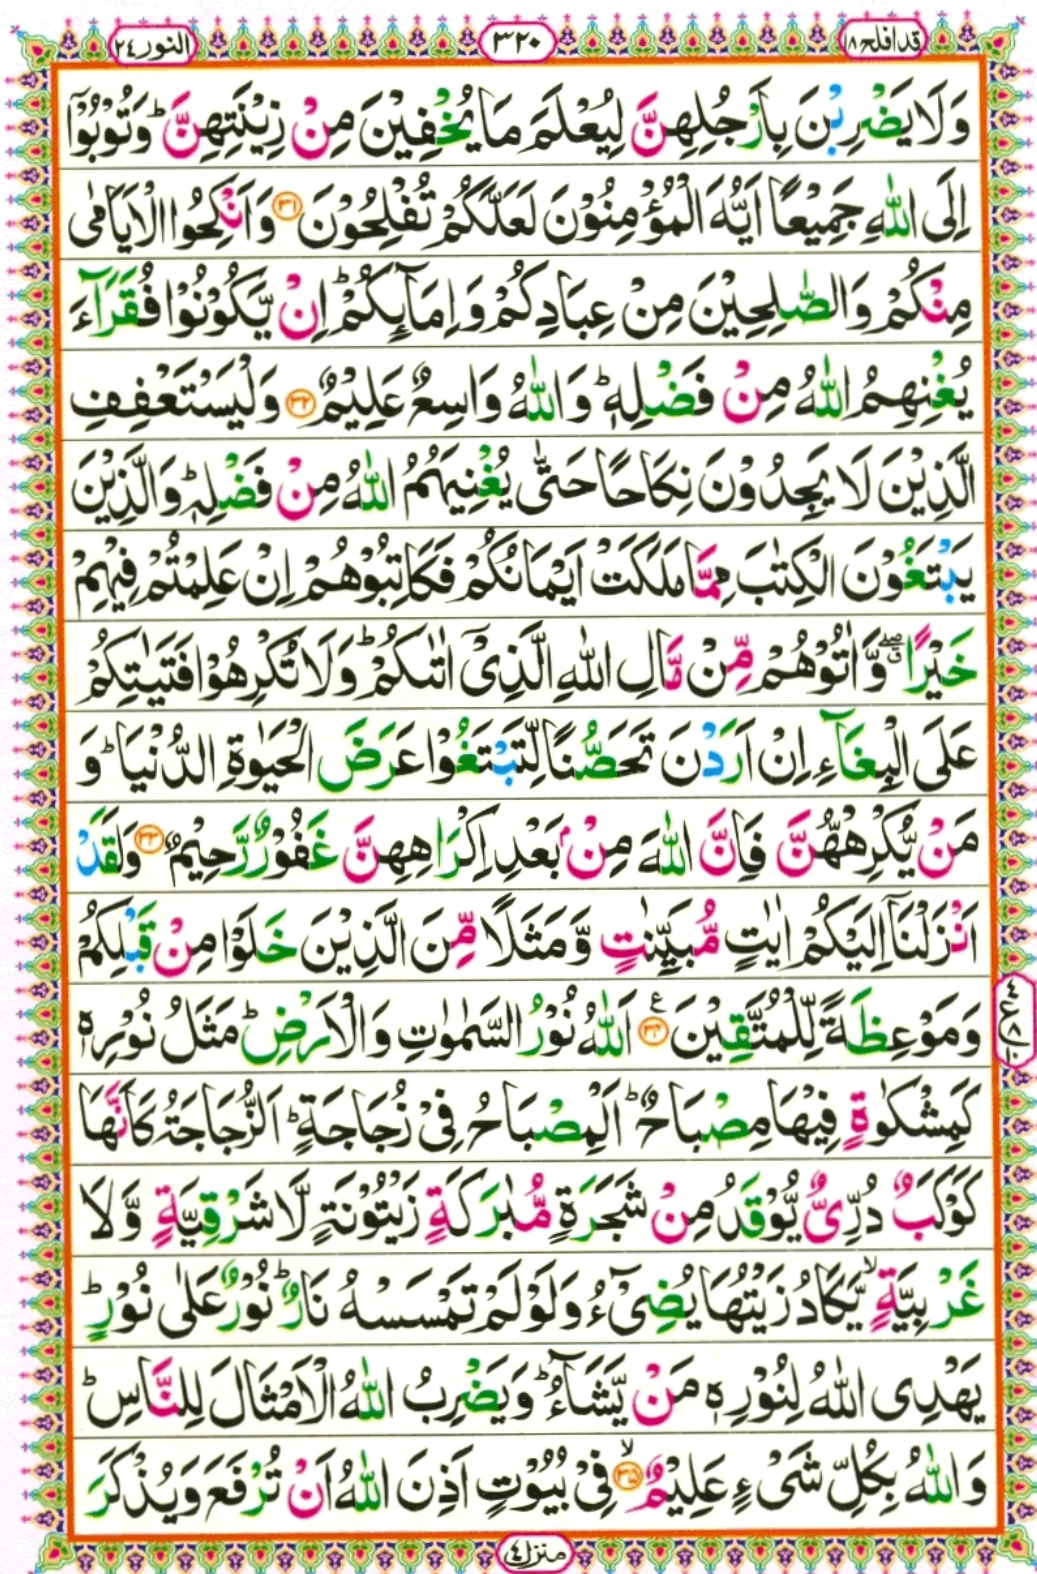 قد افلح ١٨
٣٢٠
النور ٢٤
وَلَا يَضْرِبْنَ بِاَرْجُلِهِنَّ لِيُعْلَمَ مَا يُخْفِيْنَ مِنْ زِيْنَتِهِنَّ ؕ وَتُوْبُوْۤا
اِلَى اللّٰهِ جَمِيْعًا اَيُّهَ الْمُؤْمِنُوْنَ لَعَلَّكُمْ تُفْلِحُوْنَ ﴿٣١﴾ وَاَنْكِحُوا الْاَيَامٰى
مِنْكُمْ وَالصّٰلِحِيْنَ مِنْ عِبَادِكُمْ وَاِمَآىِٕكُمْ ؕ اِنْ يَّكُوْنُوْا فُقَرَآءَ
يُغْنِهِمُ اللّٰهُ مِنْ فَضْلِهٖ ؕ وَاللّٰهُ وَاسِعٌ عَلِيْمٌ ﴿٣٢﴾ وَلْيَسْتَعْفِفِ
الَّذِيْنَ لَا يَجِدُوْنَ نِكَاحًا حَتّٰى يُغْنِيَهُمُ اللّٰهُ مِنْ فَضْلِهٖ ؕ وَالَّذِيْنَ
يَبْتَغُوْنَ الْكِتٰبَ مِمَّا مَلَكَتْ اَيْمَانُكُمْ فَكَاتِبُوْهُمْ اِنْ عَلِمْتُمْ فِيْهِمْ
خَيْرًا ۖق وَّاٰتُوْهُمْ مِّنْ مَّالِ اللّٰهِ الَّذِيْۤ اٰتٰىكُمْ ؕ وَلَا تُكْرِهُوْا فَتَيٰتِكُمْ
عَلَى الْبِغَآءِ اِنْ اَرَدْنَ تَحَصُّنًا لِّتَبْتَغُوْا عَرَضَ الْحَيٰوةِ الدُّنْيَا ؕ وَ
مَنْ يُّكْرِهْهُّنَّ فَاِنَّ اللّٰهَ مِنْۢ بَعْدِ اِكْرَاهِهِنَّ غَفُوْرٌ رَّحِيْمٌ ﴿٣٣﴾ وَلَقَدْ
اَنْزَلْنَاۤ اِلَيْكُمْ اٰيٰتٍ مُّبَيِّنٰتٍ وَّمَثَلًا مِّنَ الَّذِيْنَ خَلَوْا مِنْ قَبْلِكُمْ
وَمَوْعِظَةً لِّلْمُتَّقِيْنَ ﴿٣٤﴾ ع اَللّٰهُ نُوْرُ السَّمٰوٰتِ وَالْاَرْضِ ؕ مَثَلُ نُوْرِهٖ
كَمِشْكٰوةٍ فِيْهَا مِصْبَاحٌ ؕ اَلْمِصْبَاحُ فِيْ زُجَاجَةٍ ؕ اَلزُّجَاجَةُ كَاَنَّهَا
كَوْكَبٌ دُرِّيٌّ يُّوْقَدُ مِنْ شَجَرَةٍ مُّبٰرَكَةٍ زَيْتُوْنَةٍ لَّا شَرْقِيَّةٍ وَّلَا
غَرْبِيَّةٍ ۙ يَّكَادُ زَيْتُهَا يُضِيْٓءُ وَلَوْ لَمْ تَمْسَسْهُ نَارٌ ؕ نُوْرٌ عَلٰى نُوْرٍ ؕ
يَهْدِى اللّٰهُ لِنُوْرِهٖ مَنْ يَّشَآءُ ؕ وَيَضْرِبُ اللّٰهُ الْاَمْثَالَ لِلنَّاسِ ؕ
وَاللّٰهُ بِكُلِّ شَيْءٍ عَلِيْمٌ ﴿٣٥﴾ۙ فِيْ بُيُوْتٍ اَذِنَ اللّٰهُ اَنْ تُرْفَعَ وَيُذْكَرَ
منزل ٤